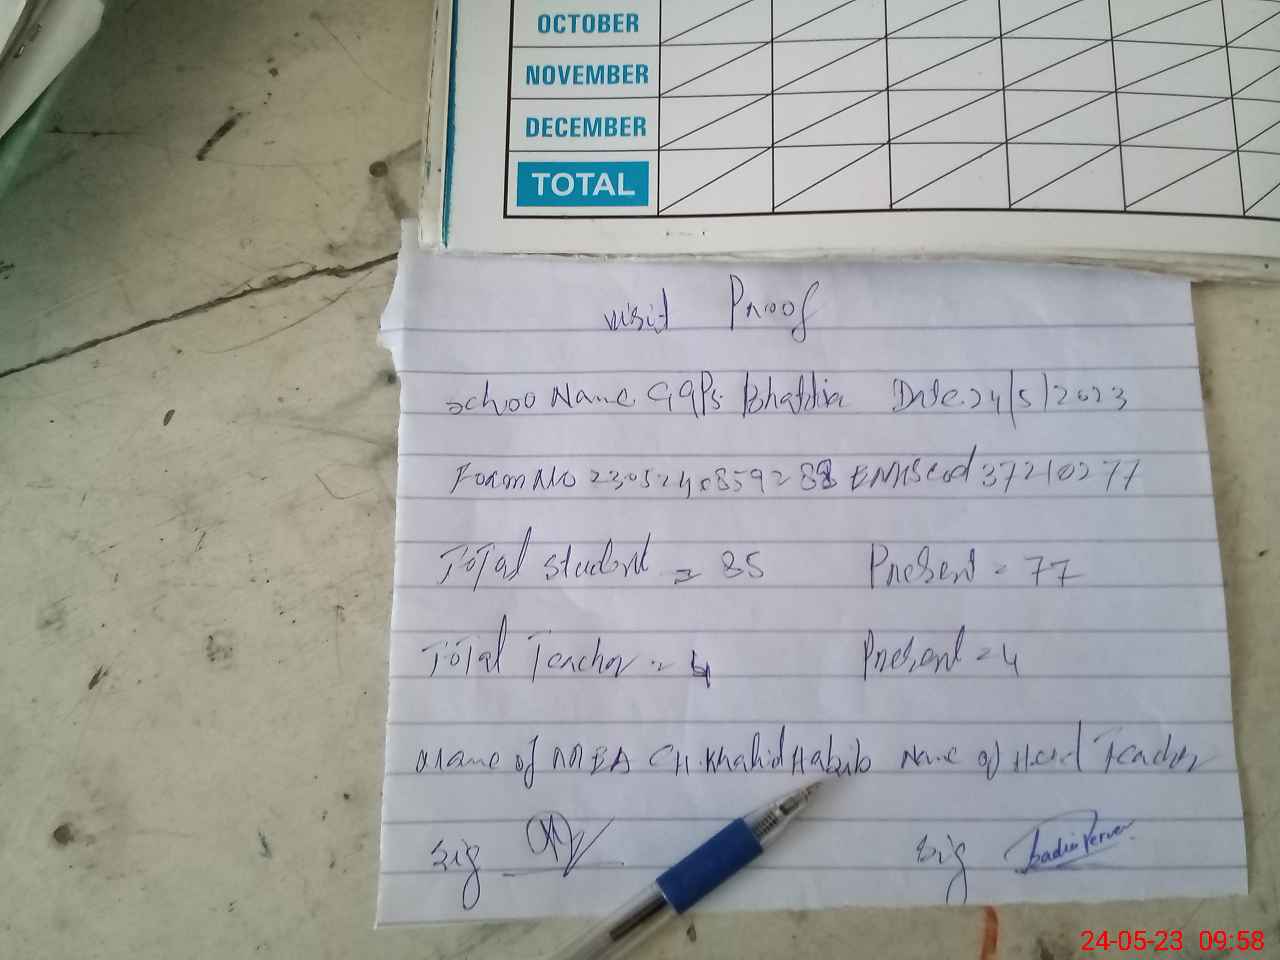 OCTOBER
NOVEMBER
DECEMBER
TOTAL
visit Proof
School Name GGPS. Bhattia Date.24/5/2023
Form No 230524085928 EMIScod 37210277
Total student = 85 Present = 77
Total Teacher = 4 Present = 4
Name of MEA CH.Khalid Habib Name of Head Teacher
Sig Sig
24-05-23 09:58